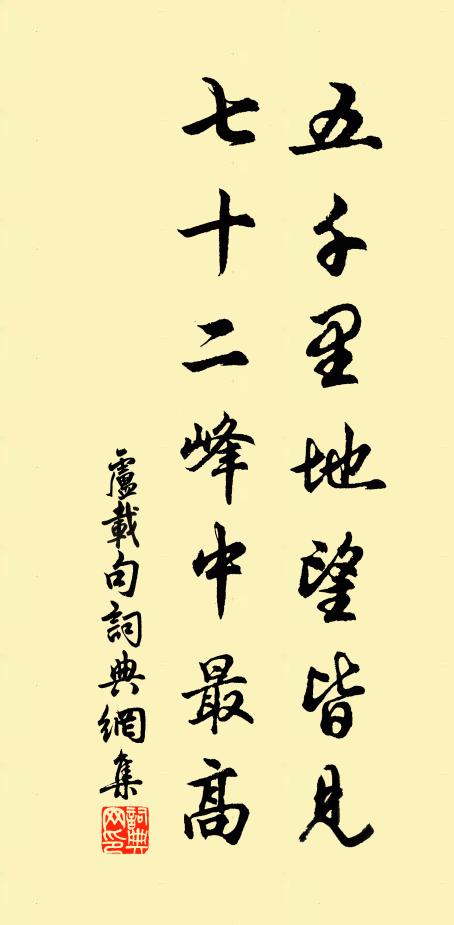 五千里地望皆見
七十二峰中最高
盧載句詞典網集
詞典网印